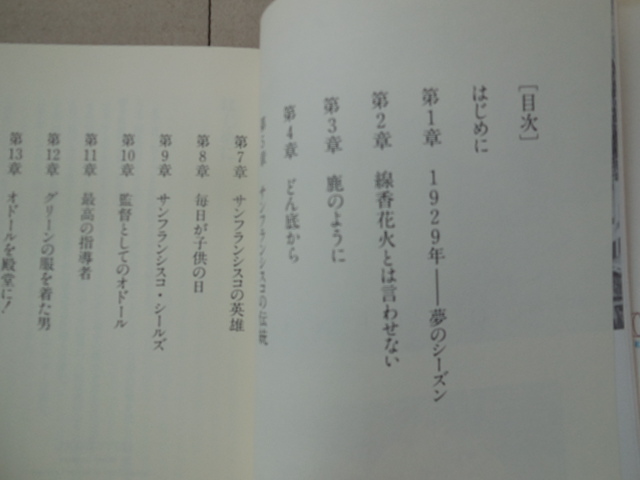 [目次]
はじめに
第1章 1929年――夢のシーズン
第2章 線香花火とは言わせない
第3章 鹿のように
第4章 どん底から
第5章 サンフランシスコの
第7章 サンフランシスコの英雄
第8章 毎日が子供の日
第9章 サンフランシスコ・シールズ
第10章 監督としてのオドール
第11章 最高の指導者
第12章 グリーンの服を着た男
第13章 オドールを殿堂に!